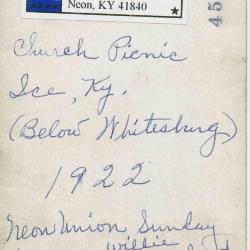 Neon, KY 41840
45
Church Picnic
Ice, Ky.
(Below Whitesburg)
1922
Neon Union, Sunday
Willie